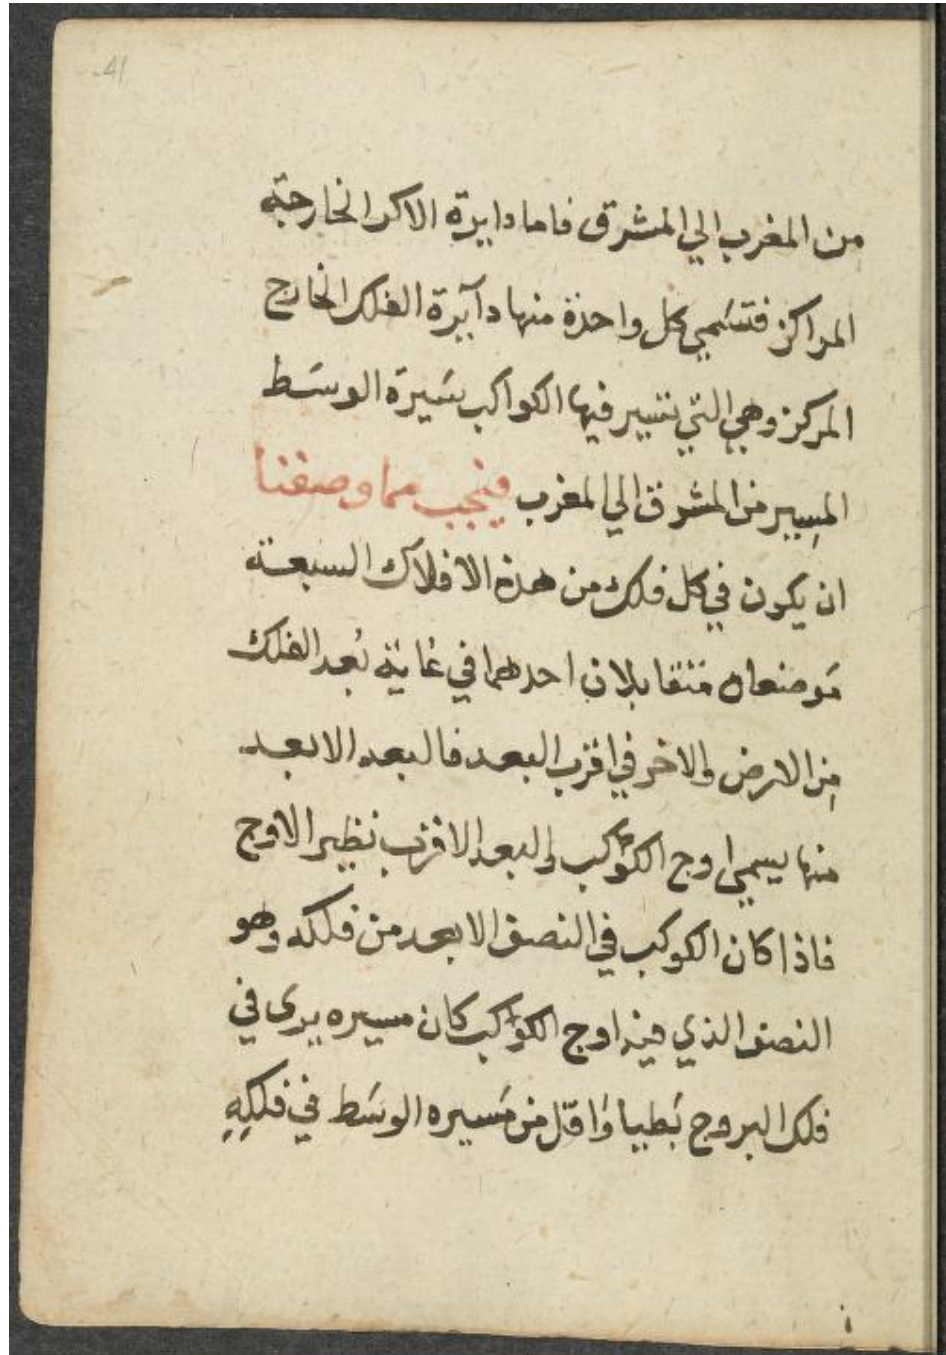 41
من المغرب الي المشرق فاما دايرة الاكر الخارجة
المراكز فتسَمي كل واحدة منها دآيرة الفلك الخارج
المركز وهي التي تسير فيها الكواكب سَيرة الوسَط
المسِير من المشرق الي المغرب فيجب مما وصفنا
ان يكون في كل فلك من هذه الافلاك السبعة
مَوضعان متقابلان احدهما في غاية بُعد الفلك
مِن الارض والاخر في اقرب البعد فالبعد الابعد
منها يسمي اوج الكوكب والبعد الاقرب نظير الاوج
فاذا كان الكوكب في النصف الابعد من فلكه وهو
النصف الذي فيه اوج الكوكب كان مسيره يرى في
فلك البروج بَطيا وَاقل من مَسيره الوسَط في فلكِهِ